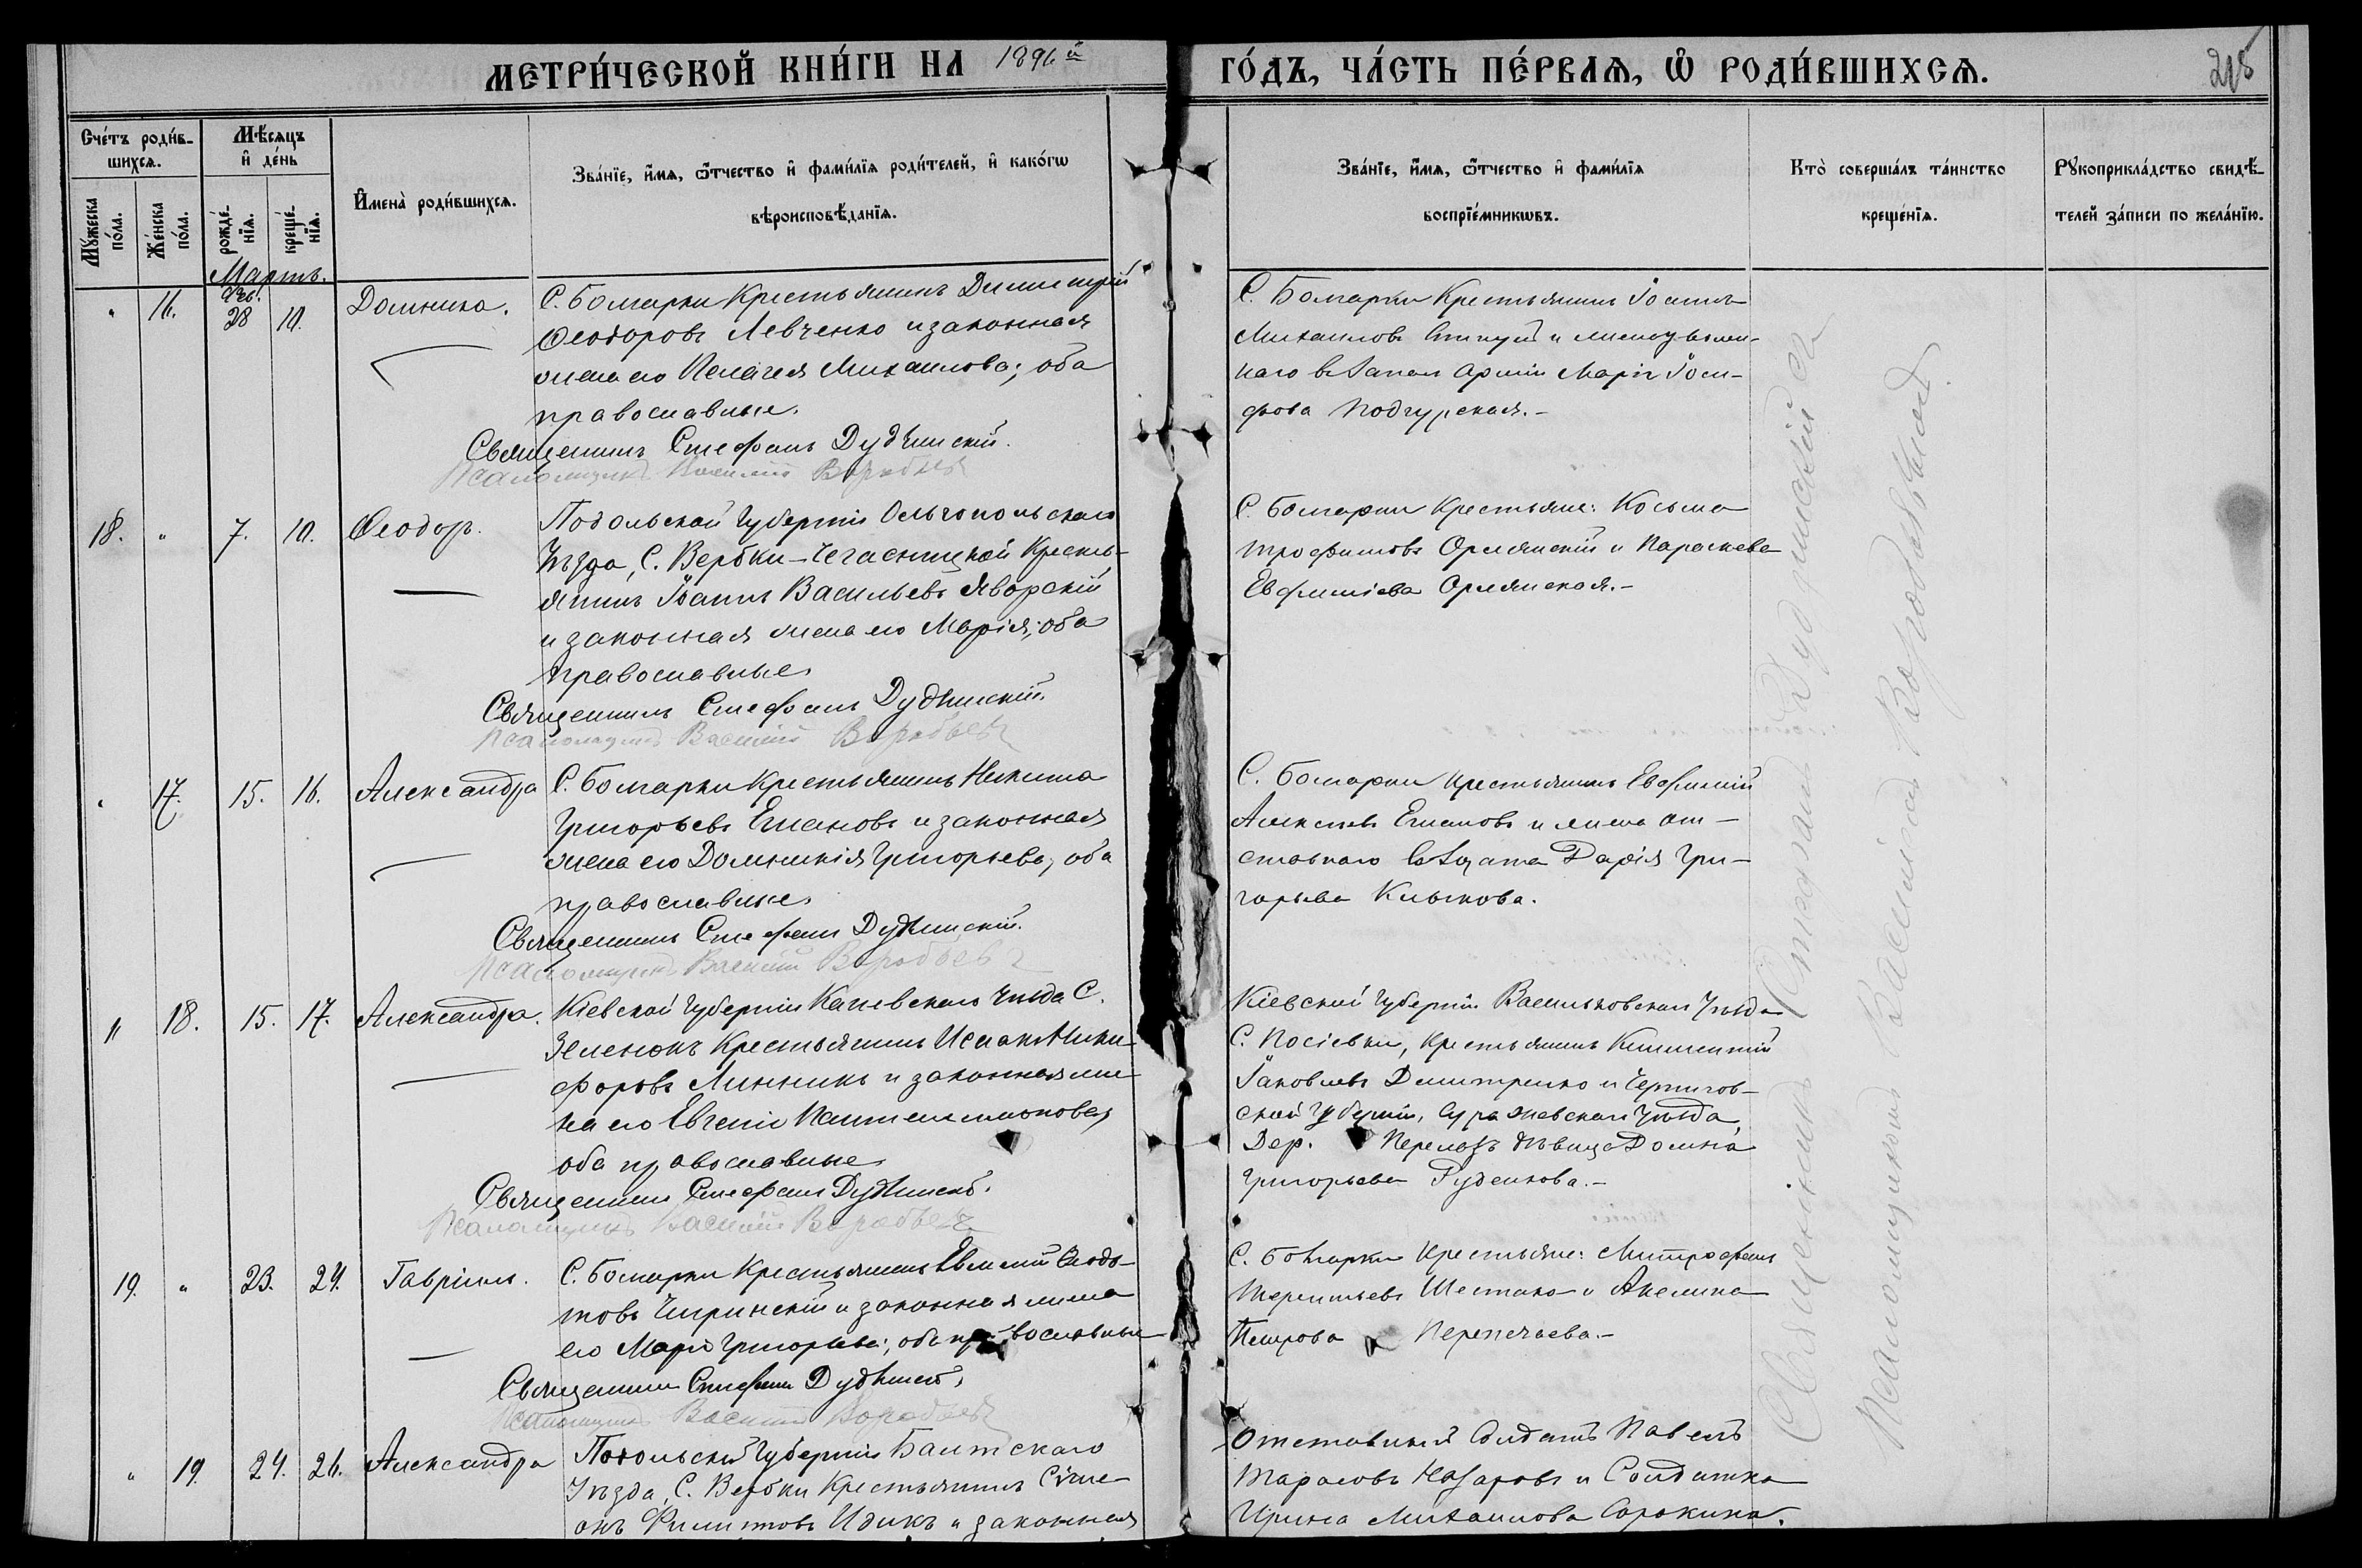 МЕТРИ́ЧЕСКОЙ КНИ́ГИ НА 1896й ГО́ДЪ, ЧА́СТЬ ПЕ́РВАѦ, Ѡ҆ РОДИ́ВШИХСѦ.
Сче́тъ роди́в-
шихсѧ.
Мꙋ́жеска по́ла.
Же́нска по́ла.
Мѣ́сѧцъ
и҆ де́нь
рожде́-
нїѧ.
креще́-
нїѧ.
И҆мена̀ роди́вшихсѧ.
Зва́нїе, и҆́мѧ, ѻ҆́тчество и҆ фами́лїѧ роди́телей, и҆ како́гѡ
вѣроисповѣ́данїѧ.
Зва́нїе, и҆́мѧ, ѻ҆́тчество и҆ фами́лїѧ
воспрїе́мникѡвъ.
Кто̀ соверша́лъ та́инство
креще́нїѧ.
Рꙋкоприкла́дство свидѣ́-
телей за́писи по жела́нїю.
Мартъ.
" 16. Фев. 28 10. Домника.
С. Болгарки Крестьянинъ Димитрій
Ѳеодоровъ Левченко и законная
жена его Пелагея Михаилова; оба
православные.
Священникъ Стефанъ Дудчинскій.
Псаломщикъ Василій
С. Болгарки Крестьянинъ Іоаннъ
Михаиловъ и жена уволен-
наго въ запасъ арміи Марія Іоси-
фова Подгурская.-
18. " 7. 10. Ѳеодоръ.
Подольской Губерніи Ольгопольскаго
Уѣзда, С. Вербки-Чечельницкой Кресть-
янинъ Іоаннъ Васильевъ Яворскій
и законная жена его Марія; оба
православные
Священникъ Стефанъ Дудчинскій.
Псаломщикъ Василій
С. Болгарки Крестьяне: Косьма
Трофимовъ Орлянскій и Параскева
Евфиміева Орлянская.-
" 17. 15. 16. Александра
С. Болгарки Крестьянинъ Никита
Григорьевъ Елмановъ и законная
жена его Домникія Григорьева, оба
православные
Священникъ Стефанъ Дудчинскій.
Псаломщикъ Василій
С. Болгарки Крестьянинъ Евфимій
Алексѣевъ Елмановъ и жена от-
ставнаго Дарія Гри-
горьева Клычкова.
" 18. 15. 17. Александра.
Кіевской Губерніи Каневскаго Уѣзда С.
Зеленокъ Крестьянинъ Исаакъ Ники-
форовъ Линникъ и законная же-
на его Евгенія Пантелеимонова,
оба православные
Священникъ Стефанъ Дудчинскій.
Псаломщикъ Василій
Кіевской Губерніи Васильковскаго Уѣзда
С. Крестьянинъ Климентій
Іаковлевъ Дмитренко и Чернигов-
ской Губерніи, Суражевскаго Уѣзда,
Дер. Перелозъ дѣвица Домна
Григорьева Руденкова.-
19. " 23. 24. Гавріилъ.
С. Болгарки Крестьянинъ Ѳедо-
товъ Чигринскій и законная жена
его Марія Григорьева; оба православные
Священникъ Стефанъ Дудчинскій.
Псаломщикъ Василій
С. Болгарки Крестьяне: Митрофанъ
Терентьевъ Шестако и Акелина
Петрова Перепечаева.-
" 19. 24. 26. Александра
Подольской Губерніи Балтскаго
Уѣзда, С. Вербки Крестьянинъ Симе-
онъ Филиповъ Идикъ и законная
Отставной Солдатъ Павелъ
Тарасовъ Назаровъ и Солдатка
Ирина Михаилова Сорокина.
Священникъ Стефанъ Дудчинскій съ
Псаломщикомъ Василіемъ